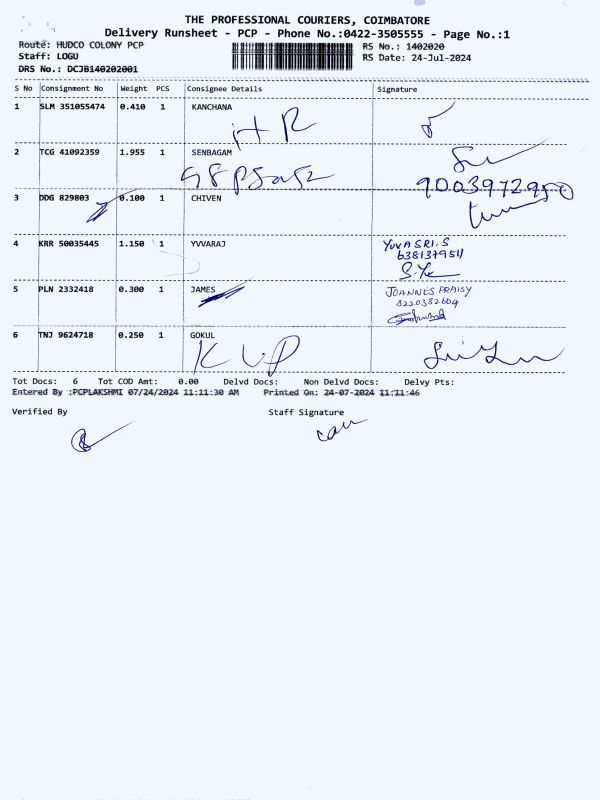 THE PROFESSIONAL COURIERS, COIMBATORE
Delivery Runsheet - PCP - Phone No.:0422-3505555 - Page No.:1
Route: HUDCO COLONY PCP RS No.: 1402020
Staff: LOGU RS Date: 24-Jul-2024
DRS No.: DCJB140202001
S No Consignment No Weight PCS Consignee Details Signature
1 SLM 351055474 0.410 1 KANCHANA
H R
2 TCG 41092359 1.955 1 SENBAGAM
9003972950
3 DDG 829803 0.100 1 CHIVEN
4 KRR 50035445 1.150 1 YVVARAJ YUVASRI.S
6381379511
5 PLN 2332418 0.300 1 JAMES JOANNES PRAISY
8220382604
6 TNJ 9624718 0.250 1 GOKUL
K V P
Tot Docs: 6 Tot COD Amt: 0.00 Delvd Docs: Non Delvd Docs: Delvy Pts:
Entered By :PCPLAKSHMI 07/24/2024 11:11:30 AM Printed On: 24-07-2024 11:11:46
Verified By Staff Signature